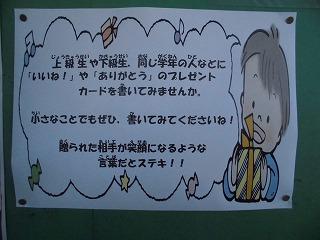 上級生や下級生、同じ学年の人などに
「いいね！」や「ありがとう」のプレゼント
カードを書いてみませんか。
小さなことでもぜひ、書いてみてくださいね！
贈られた相手が笑顔になるような
言葉だとステキ！！